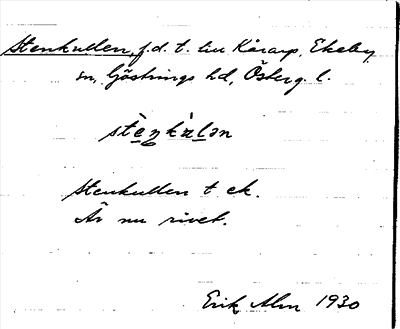 Stenkullen, f.d. t. u. Kårarp, Ekeby
sn, Göstrings hd, Östergl.
stènkàlən
Stenkullen t ek.
Är nu rivet.
Erik Alm 1930